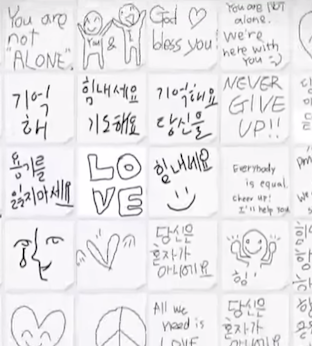 You are
not
"ALONE".
You & I
God ♡
bless you!
You are not
alone.
We're
here with
you :)
기억
해
힘내세요
기도해요
기억해요
당신을
NEVER
GIVE
UP!!
용기를
잃지마세요
LO
VE
힘내세요
Everybody
is equal.
cheer up!
I'll help you
당신은
혼자가
아니에요
힘!
All we
need is
LOVE
당신은
혼자가
아니에요